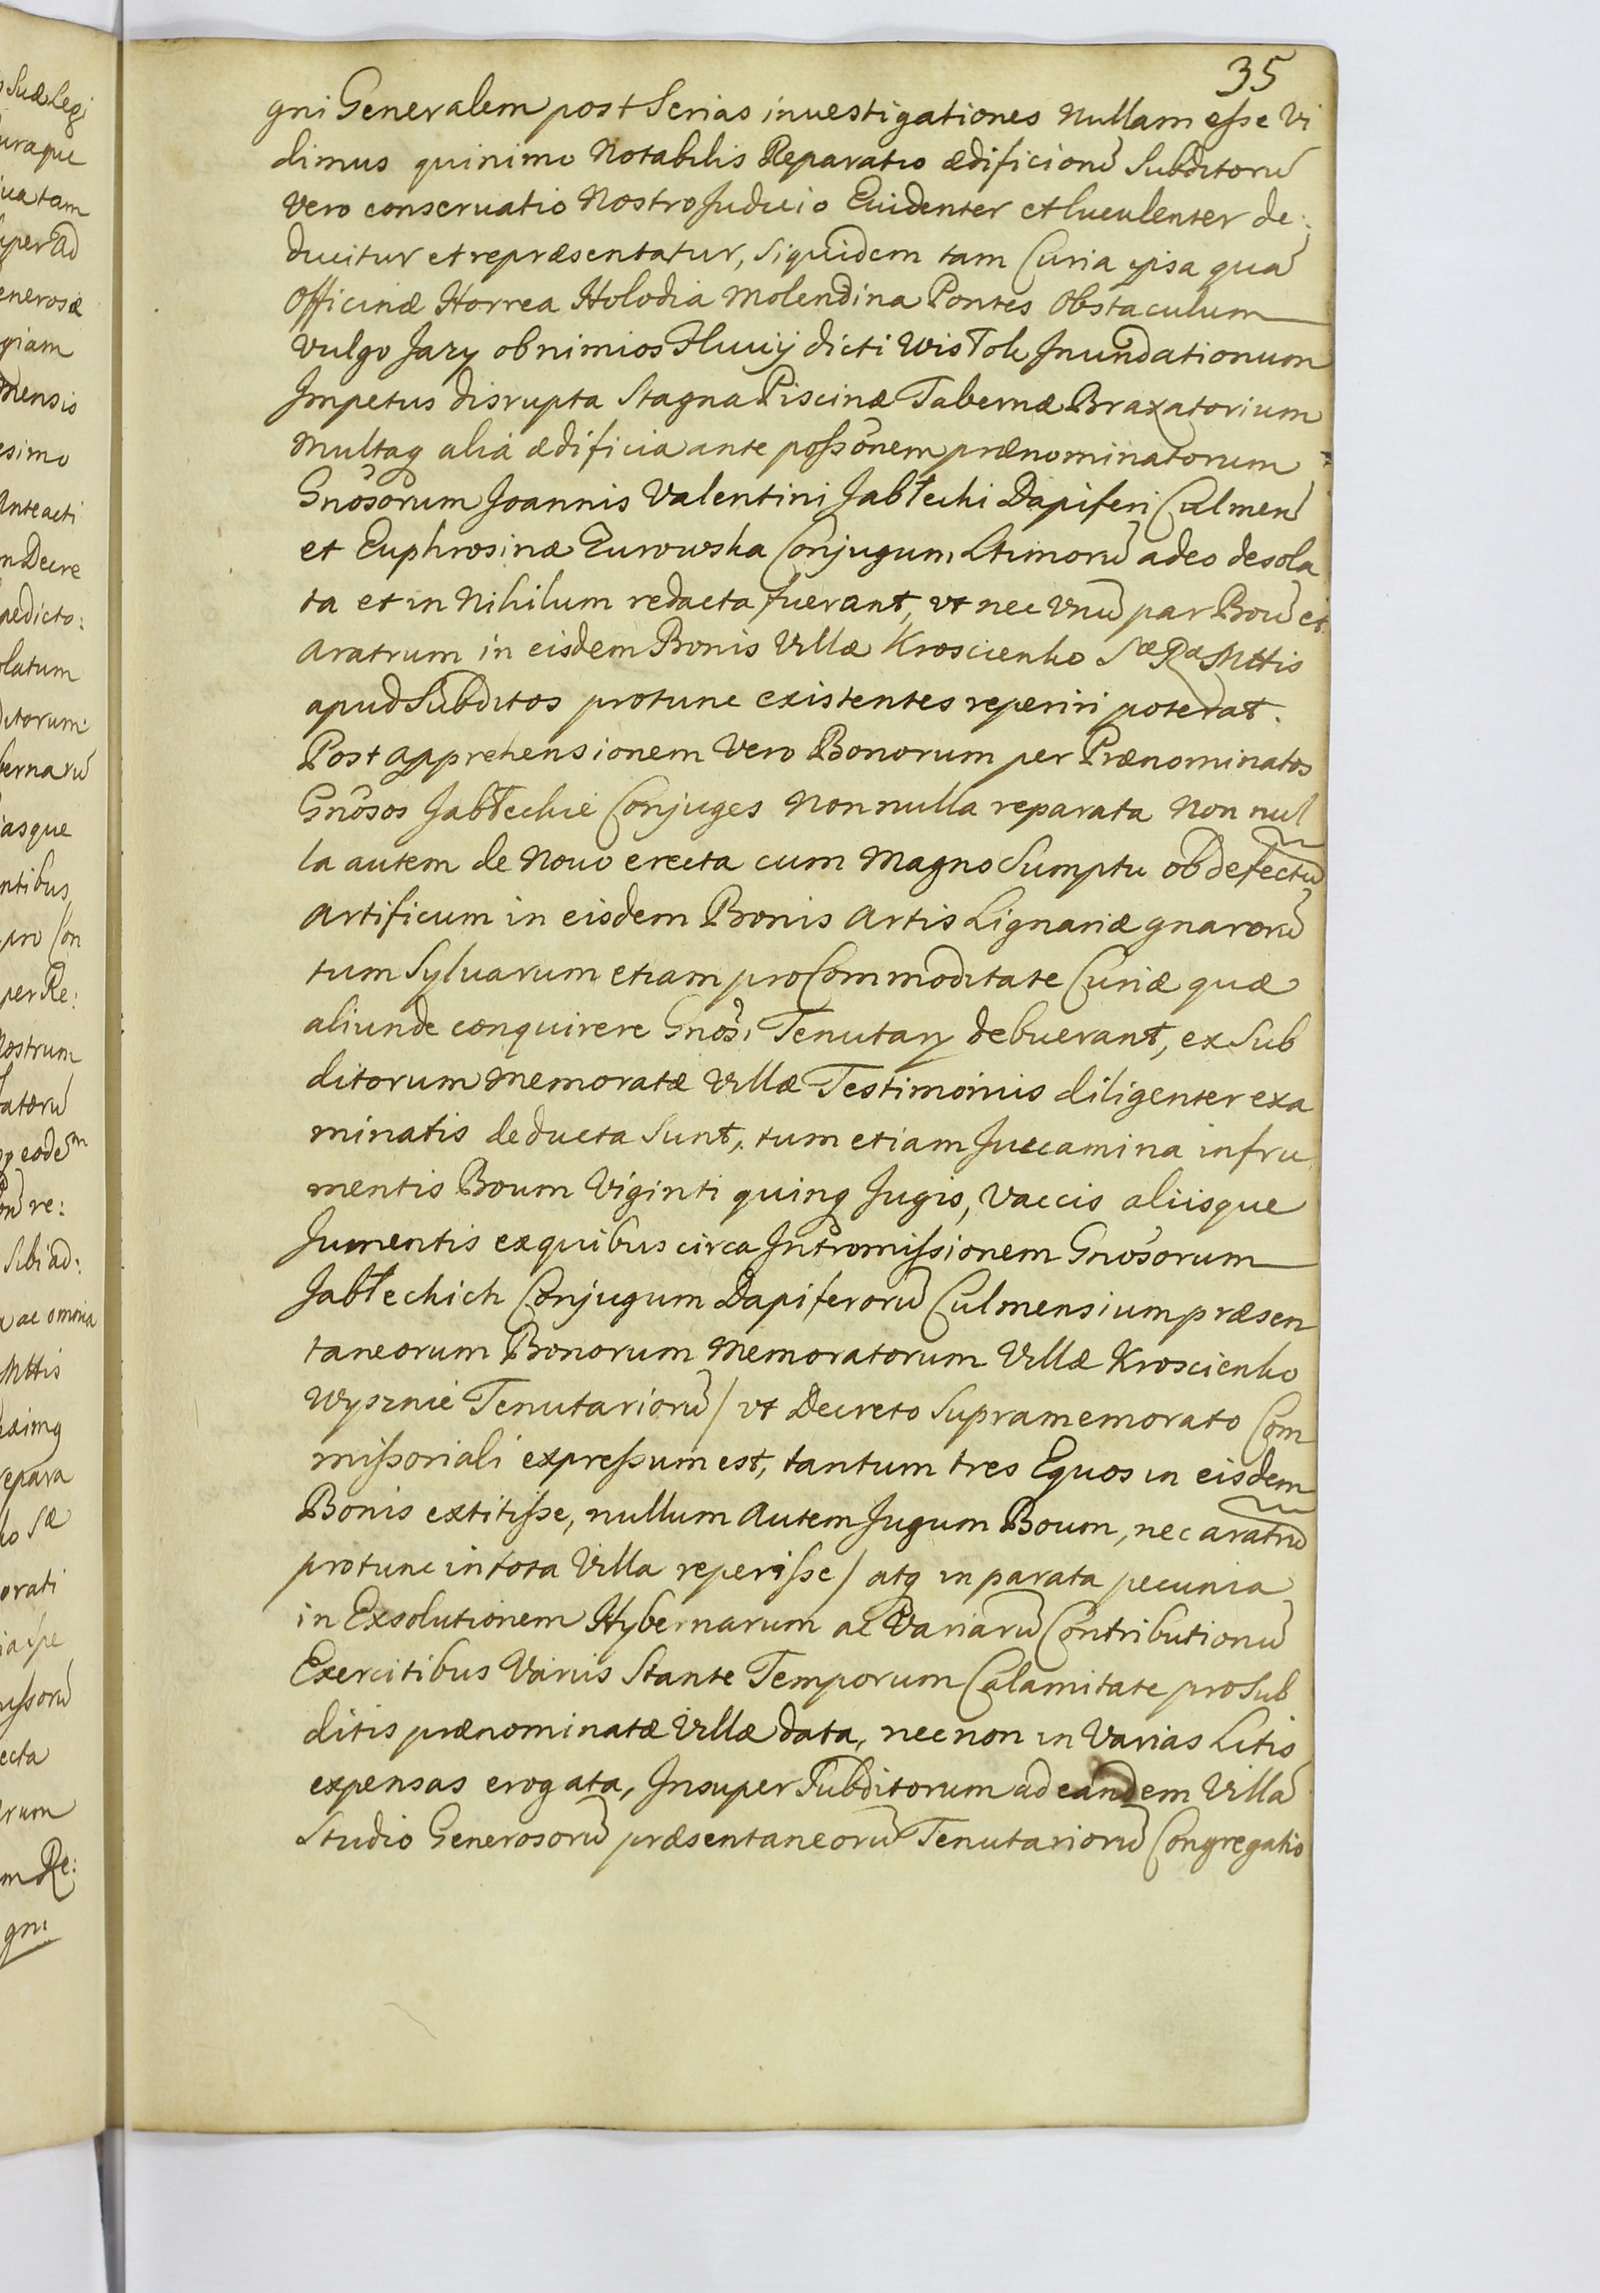 35
gni Generalem post Serias inuestigationes Nullam esse Vi
dimus quinimo Notabilis Reparatio ædificionũ Subditorũ
Vero conseruatio Nostro Judicio Euidenter et luculenter de:
ducitur et repræsentatur, Siquidem tam Curia ipsa quã
Officinæ Horrea Holodia Molendina Pontes Obstaculum
Vulgo Jazy ob nimios Fluuij dicti Wisłok Jnundationum
Jmpetus disrupta Stagna Piscinæ Tabernæ Braxatorium
Multaq alia ædificia ante possõnem prænominatorum
Gnõsorum Joannis Valentini Jabłecki Dapiferi Culmeñ
et Euphrosinæ Zurowska Conjugum Ltimorũ adeo desola
ta et in Nihilum redacta fuerant, vt nec Vnũ par Boũ et
Aratrum in eisdem Bonis Villæ Kroscienko Sæ Ræ Mttis
apud Subditos protunc existentes reperiri poterat.
Post apprehensionem Vero Bonorum per Prænominatos
Gnõsos Jabłeckie Conjuges Nonnulla reparata Non nul
la autem de Nouo erecta cum Magno Sumptu ob defectũ
Artificum in eisdem Bonis Artis Lignariæ gnarorũ
tum Syluarum etiam pro Commoditate Curiæ quæ
aliunde conquirere Gnõsi Tenutarÿ debuerant, ex Sub
ditorum Memoratæ Villæ Testimonijs diligenter exa
minatis deducta Sunt, tum etiam Juccamina in fru
mentis Boum Viginti quinq Jugis, Vaccis aliisque
Jumentis ex quibus circa Jntromissionem Gnõsorum
Jabłeckich Conjugum Dapiferorũ Culmensium præsen
taneorum Bonorum Memoratorum Villæ Kroscienko
Wysznie Tenutariorũ / vt Decreto Supramemorato Com
missoriali expressum est, tantum tres Equos in eisdem
Bonis extitisse, nullum Autem Jugum Boum, nec aratrũ
protunc in tota Villa reperisse / atq in parata pecunia
in Exsolutionem Hybernarum ac Variarũ Contributionũ
Exercitibus Varijs Stante Temporum Calamitate pro Sub
ditis prænominatæ Villæ data, necnon in Varias Litis
expensas erogata, Jnsuper Subditorum ad eandem Villã
Studio Generosorũ præsentaneorũ Tenutariorũ Congregatio